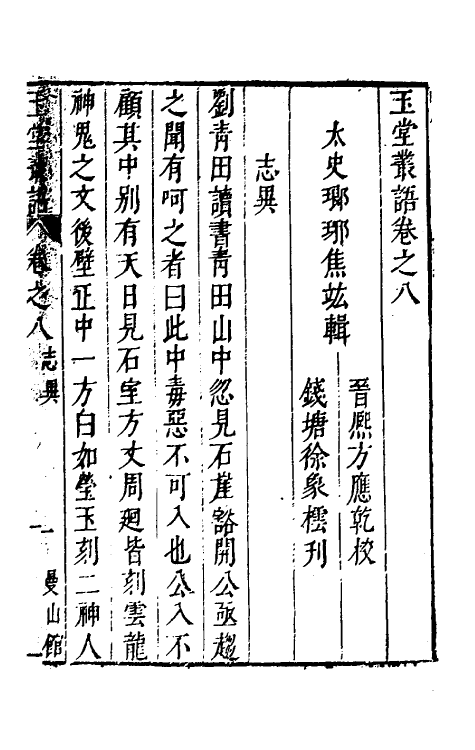 玉堂叢語卷之八
太史瑯琊焦竑輯
晉熈方應乾校
錢塘徐象橒刊
志異
劉青田讀書青田山中忽見石崖豁開公亟趨
之聞有呵之者曰此中毒惡不可入也公入不
顧其中别有天日見石室方丈周廻皆刻雲龍
神鬼之文後壁正中一方白如瑩玉刻二神人
玉堂叢語 卷之八 志異 一 曼山館